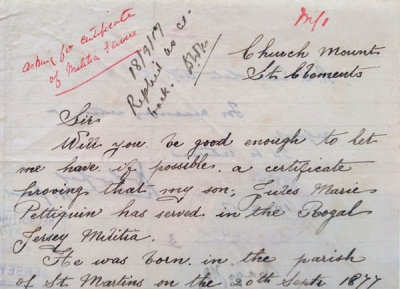 M/1
asking for certificate
of Militia Service
18/9/17
Replied as at
back.
Church Mount
St. Clements
Sir
Will you be good enough to let
me have if possible, a certificate
proving that my son, Jules Marie
Pettiquin has served in the Rogal
Jersey Militia.
He was born in the parish
of St Martins on the 20th Septr 1877